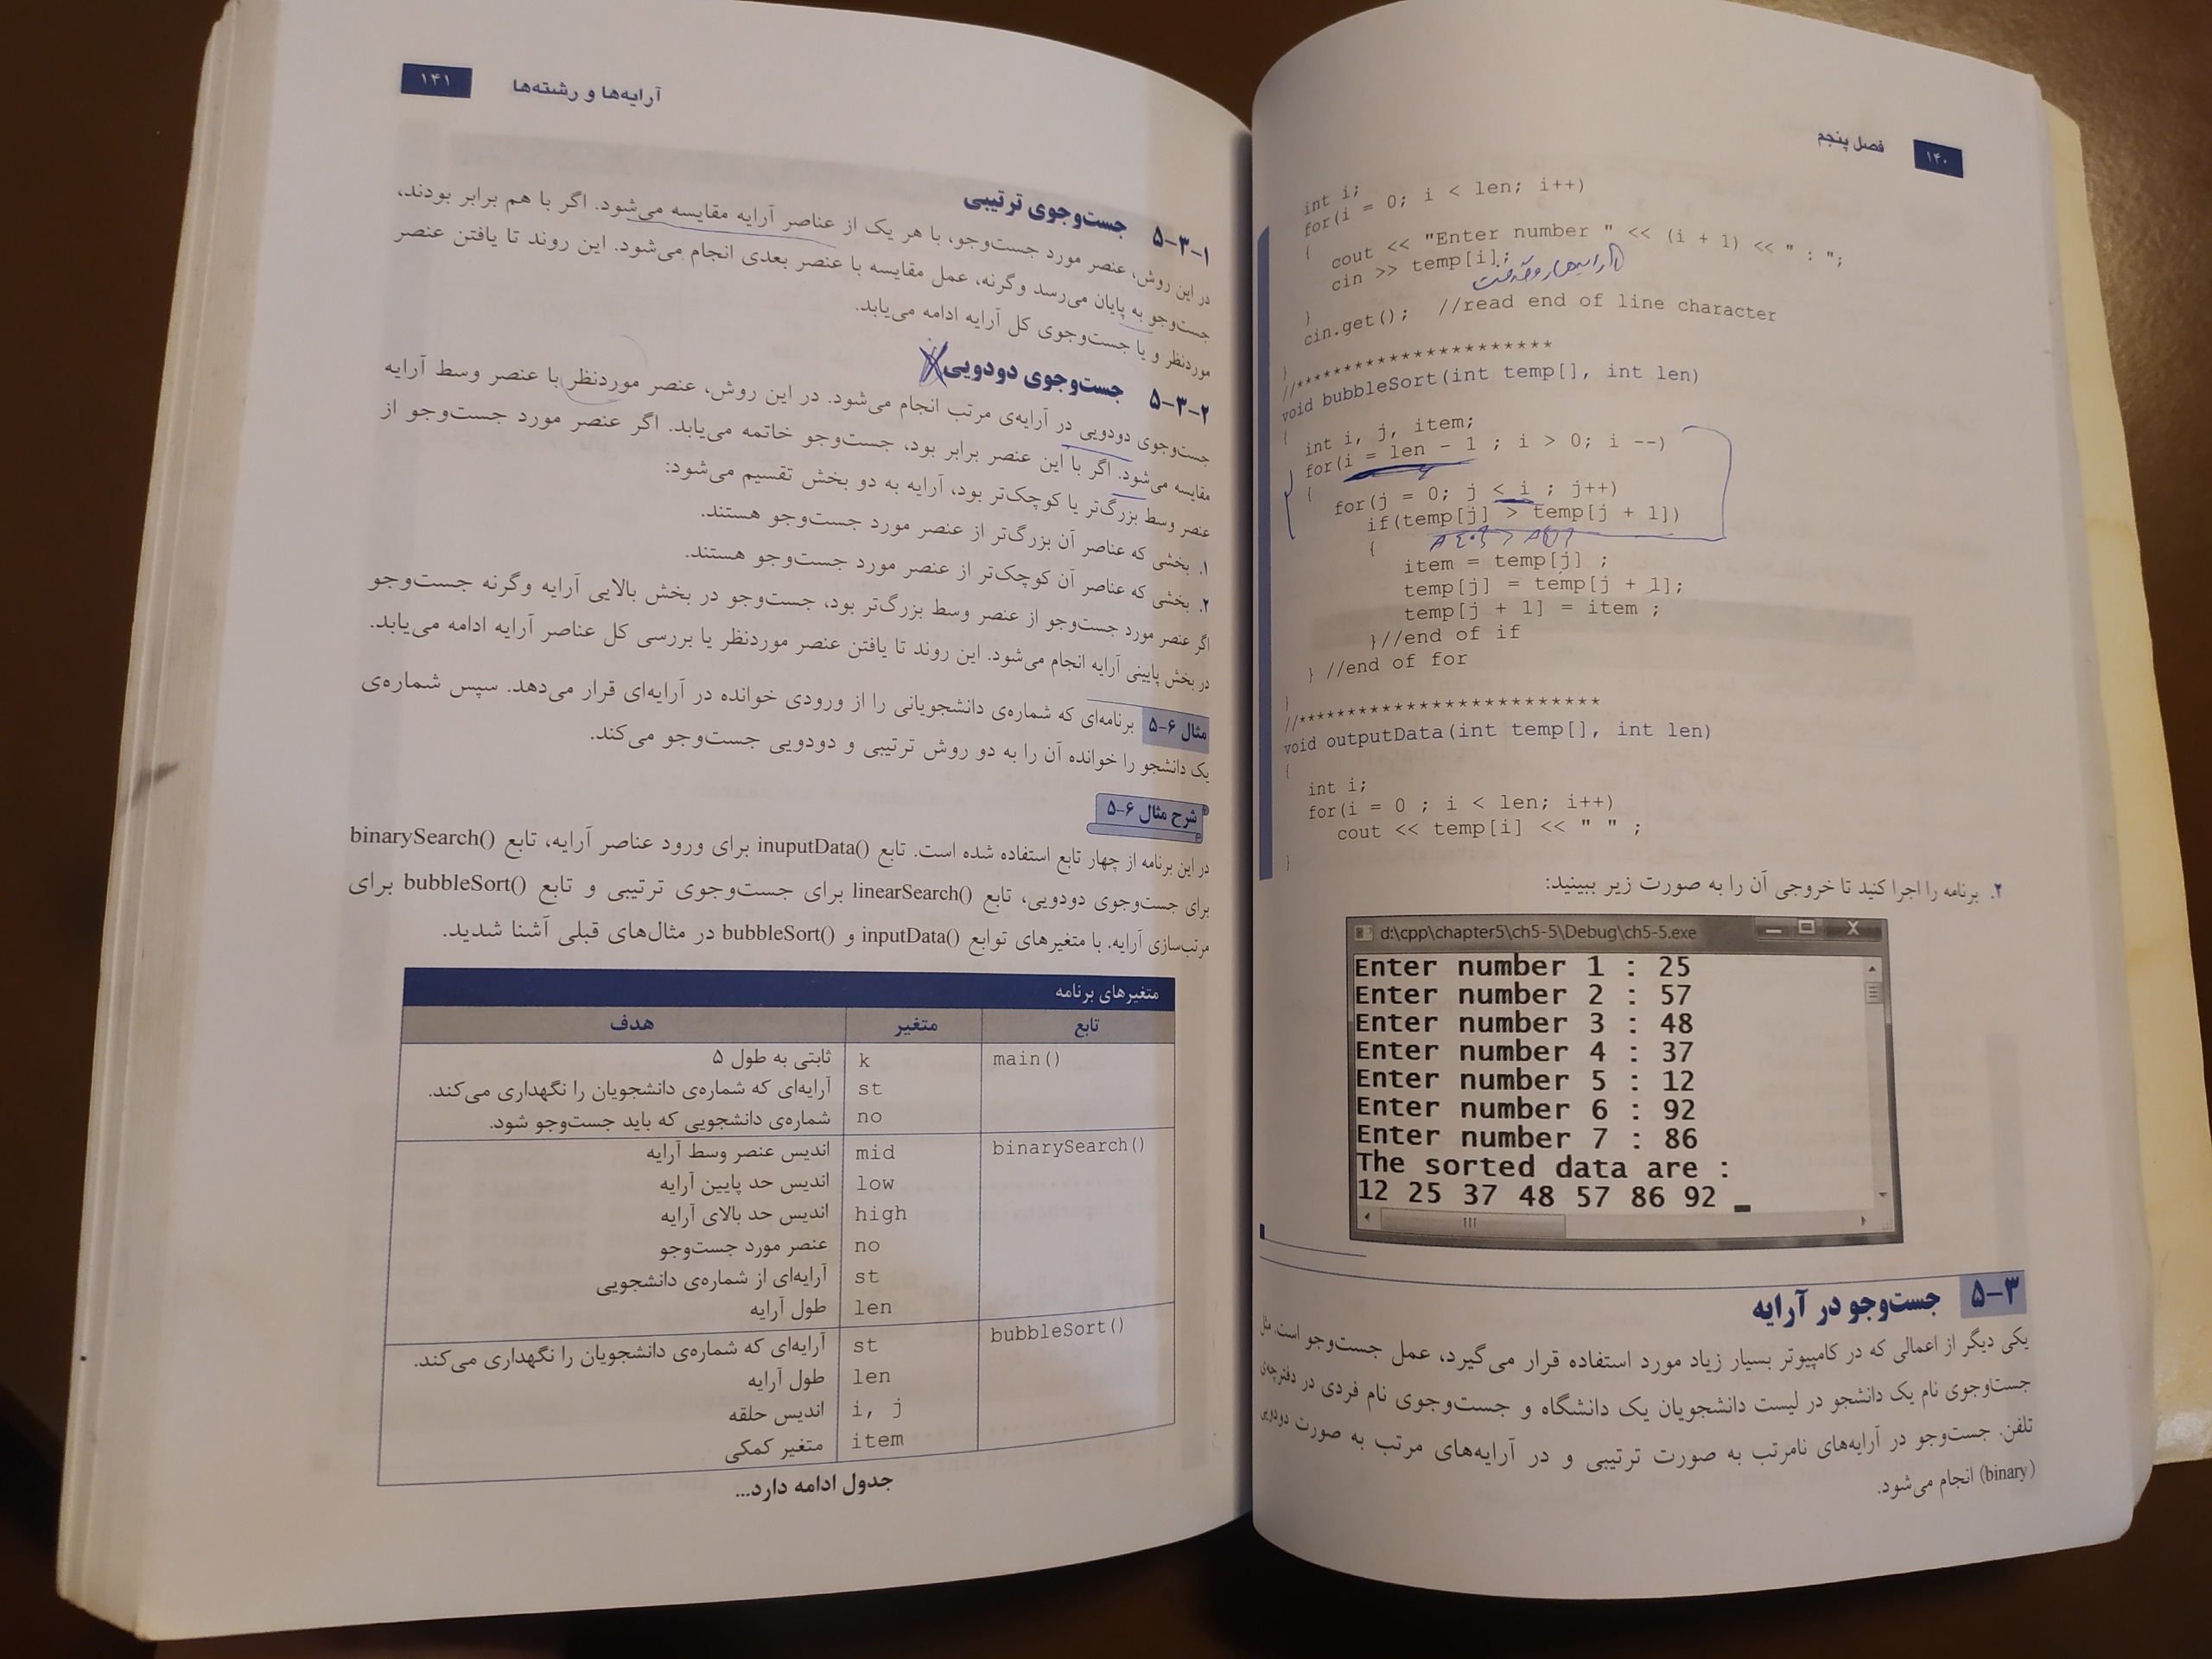 ۱۴۰ فصل پنجم
int i;
for(i = 0; i < len; i++)
{
cout << "Enter number " << (i + 1) << " : ";
cin >> temp[i];
}
cin.get(); //read end of line character
}
//**********************
void bubbleSort(int temp[], int len)
{
int i, j, item;
for(i = len - 1 ; i > 0; i --)
{
for(j = 0; j < i ; j++)
if(temp[j] > temp[j + 1])
{
item = temp[j] ;
temp[j] = temp[j + 1];
temp[j + 1] = item ;
}//end of if
} //end of for
}
//*************************
void outputData(int temp[], int len)
{
int i;
for(i = 0 ; i < len; i++)
cout << temp[i] << " " ;
}
۲. برنامه را اجرا کنید تا خروجی آن را به صورت زیر ببینید:
d:\cpp\chapter5\ch5-5\Debug\ch5-5.exe
Enter number 1 : 25
Enter number 2 : 57
Enter number 3 : 48
Enter number 4 : 37
Enter number 5 : 12
Enter number 6 : 92
Enter number 7 : 86
The sorted data are :
12 25 37 48 57 86 92
۵-۳ جست‌وجو در آرایه
یکی دیگر از اعمالی که در کامپیوتر بسیار زیاد مورد استفاده قرار می‌گیرد، عمل جست‌وجو است. مثل
جست‌وجوی نام یک دانشجو در لیست دانشجویان یک دانشگاه و جست‌وجوی نام فردی در دفترچه‌ی
تلفن. جست‌وجو در آرایه‌های نامرتب به صورت ترتیبی و در آرایه‌های مرتب به صورت دودویی
(binary) انجام می‌شود.
آرایه‌ها و رشته‌ها ۱۴۱
۵-۳-۱ جست‌وجوی ترتیبی
در این روش، عنصر مورد جست‌وجو، با هر یک از عناصر آرایه مقایسه می‌شود. اگر با هم برابر بودند،
جست‌وجو به پایان می‌رسد وگرنه، عمل مقایسه با عنصر بعدی انجام می‌شود. این روند تا یافتن عنصر
موردنظر و یا جست‌وجوی کل آرایه ادامه می‌یابد.
۵-۳-۲ جست‌وجوی دودویی
جست‌وجوی دودویی در آرایه‌ی مرتب انجام می‌شود. در این روش، عنصر موردنظر با عنصر وسط آرایه
مقایسه می‌شود. اگر با این عنصر برابر بود، جست‌وجو خاتمه می‌یابد. اگر عنصر مورد جست‌وجو از
عنصر وسط بزرگ‌تر یا کوچک‌تر بود، آرایه به دو بخش تقسیم می‌شود:
۱. بخشی که عناصر آن بزرگ‌تر از عنصر مورد جست‌وجو هستند.
۲. بخشی که عناصر آن کوچک‌تر از عنصر مورد جست‌وجو هستند.
اگر عنصر مورد جست‌وجو از عنصر وسط بزرگ‌تر بود، جست‌وجو در بخش بالایی آرایه وگرنه جست‌وجو
در بخش پایینی آرایه انجام می‌شود. این روند تا یافتن عنصر موردنظر یا بررسی کل عناصر آرایه ادامه می‌یابد.
مثال ۶-۵ برنامه‌ای که شماره‌ی دانشجویانی را از ورودی خوانده در آرایه‌ای قرار می‌دهد. سپس شماره‌ی
یک دانشجو را خوانده آن را به دو روش ترتیبی و دودویی جست‌وجو می‌کند.
شرح مثال ۶-۵
در این برنامه از چهار تابع استفاده شده است. تابع inuputData() برای ورود عناصر آرایه، تابع binarySearch()
برای جست‌وجوی دودویی، تابع linearSearch() برای جست‌وجوی ترتیبی و تابع bubbleSort() برای
مرتب‌سازی آرایه. با متغیرهای توابع inputData() و bubbleSort() در مثال‌های قبلی آشنا شدید.
متغیرهای برنامه
تابع متغیر هدف
main() k ثابتی به طول ۵
st آرایه‌ای که شماره‌ی دانشجویان را نگهداری می‌کند.
no شماره‌ی دانشجویی که باید جست‌وجو شود.
binarySearch() mid اندیس عنصر وسط آرایه
low اندیس حد پایین آرایه
high اندیس حد بالای آرایه
no عنصر مورد جست‌وجو
st آرایه‌ای از شماره‌ی دانشجویی
len طول آرایه
bubbleSort() st آرایه‌ای که شماره‌ی دانشجویان را نگهداری می‌کند.
len طول آرایه
i, j اندیس حلقه
item متغیر کمکی
جدول ادامه دارد...